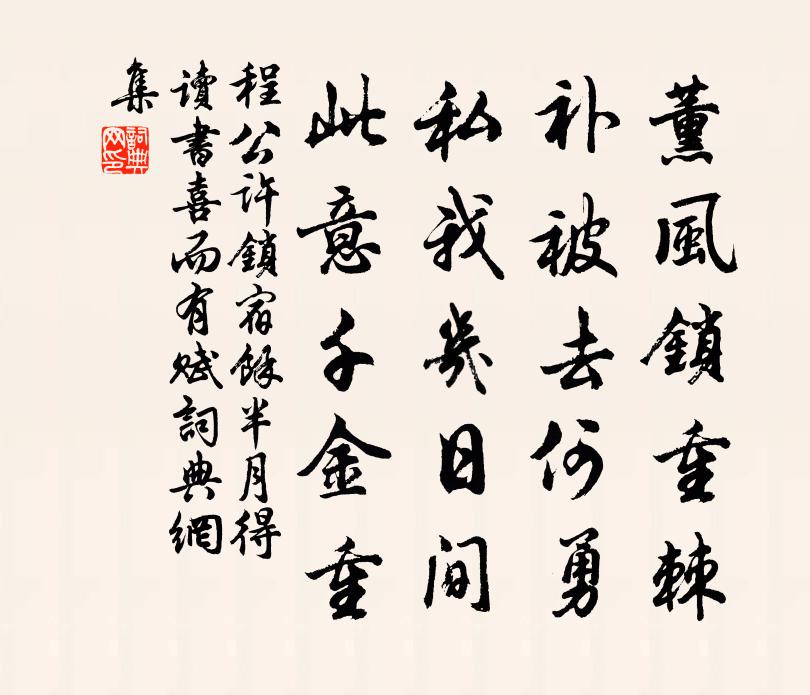 薰風鎖重棘
补被去何勇
私我幾日間
此意千金重
程公許鎖宿餘半月得
讀書喜而有賦詞典網
集
詞典网印